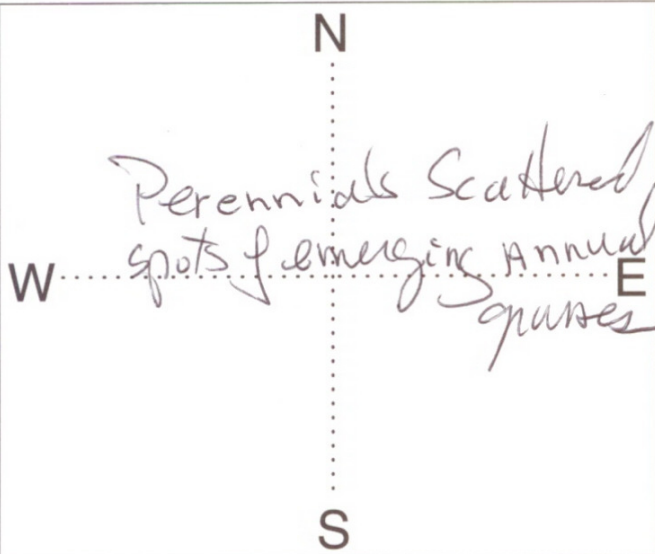 N
Perennials Scattered
spots of emerging Annual
W E
grasses
S